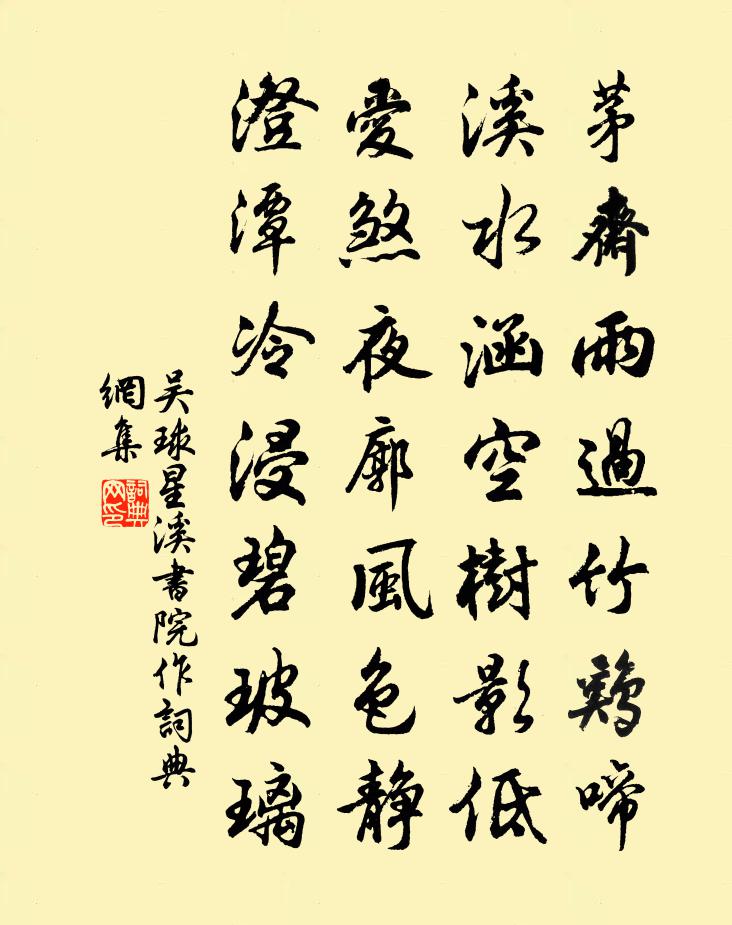 茅齋雨過竹鷄啼
溪水涵空樹影低
愛煞夜廓風色靜
澄潭冷浸碧玻璃
吴球星溪書院作詞典
網集
詞典
网印